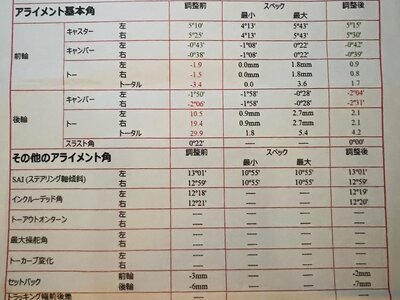 アライメント基本角 調整前 スペック 調整後
最小 最大
前輪 キャスター 左 5°10' 4°13' 5°43' 5°15'
右 5°25' 4°13' 5°43' 5°30'
キャンバー 左 -0°43' -1°08' 0°22' -0°42'
右 -0°38' -1°08' 0°22' -0°39'
トー 左 -1.9 0.0mm 1.8mm 0.9
右 -1.5 0.0mm 1.8mm 0.8
トータル -3.4 0.0 3.6 1.7
後輪 キャンバー 左 -1°50' -1°58' -0°28' -2°04'
右 -2°06' -1°58' -0°28' -2°31'
トー 左 10.5 0.9mm 2.7mm 2.1
右 19.4 0.9mm 2.7mm 2.1
トータル 29.9 1.8 5.4 4.2
スラスト角 0°22' ---- ---- 0°00'
その他のアライメント角 調整前 スペック 調整後
最小 最大
SAI (ステアリング軸傾斜) 左 13°01' 10°55' 10°55' 13°01'
右 12°59' 10°55' 10°55' 12°59'
インクルーデッド角 左 12°18' ---- ---- 12°19'
右 12°21' ---- ---- 12°20'
トーアウトオンターン 左 ---- ---- ---- ----
右 ---- ---- ---- ----
最大操舵角 左 ---- ---- ---- ----
右 ---- ---- ---- ----
トーカーブ変化 左 ---- ---- ---- ----
右 ---- ---- ---- ----
セットバック 前輪 -3mm ---- ---- -2mm
後輪 -6mm ---- ---- -7mm
トラッキング幅前後差